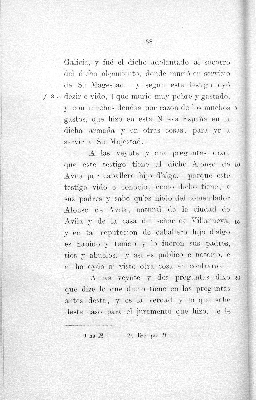 Galicia, y fué el dicho adelantado al socorro
del dicho alçamiento, donde murió en servicio
de Su Magestad y segun este testigo oyó
dezir e vido, que murio muy pobre y gastado,
y con muchas deudas por razon de los muchos
gastos, que hizo en esta Nueva España en la
dicha armada y en otras cosas, para yr a
servir a Su Majestad.
A las veynte y una preguntas dixo,
que este testigo tiene al dicho Alonso de
Avila por caballero hijo dalgo, porque este
testigo vido e conocio, como dicho tiene, a
sus padres y sabe qu'es hijo del comendador
Alonso de Avila, natural de la ciudad de
Avila y de la casa del señor de Villanueva,
y en tal reputacion de caballero hijo dalgo
es havido y tenido y lo fueron sus padres,
tios y abuelos, y asi es publico e notorio, e
no ha oydo ni visto otra cosa en contrario.
A las veynte y dos preguntas dixo
que dize lo que dicho tiene en las preguntas
antes desta, y es la verdad y lo que sabe
deste caso para el juramento que hizo, e le